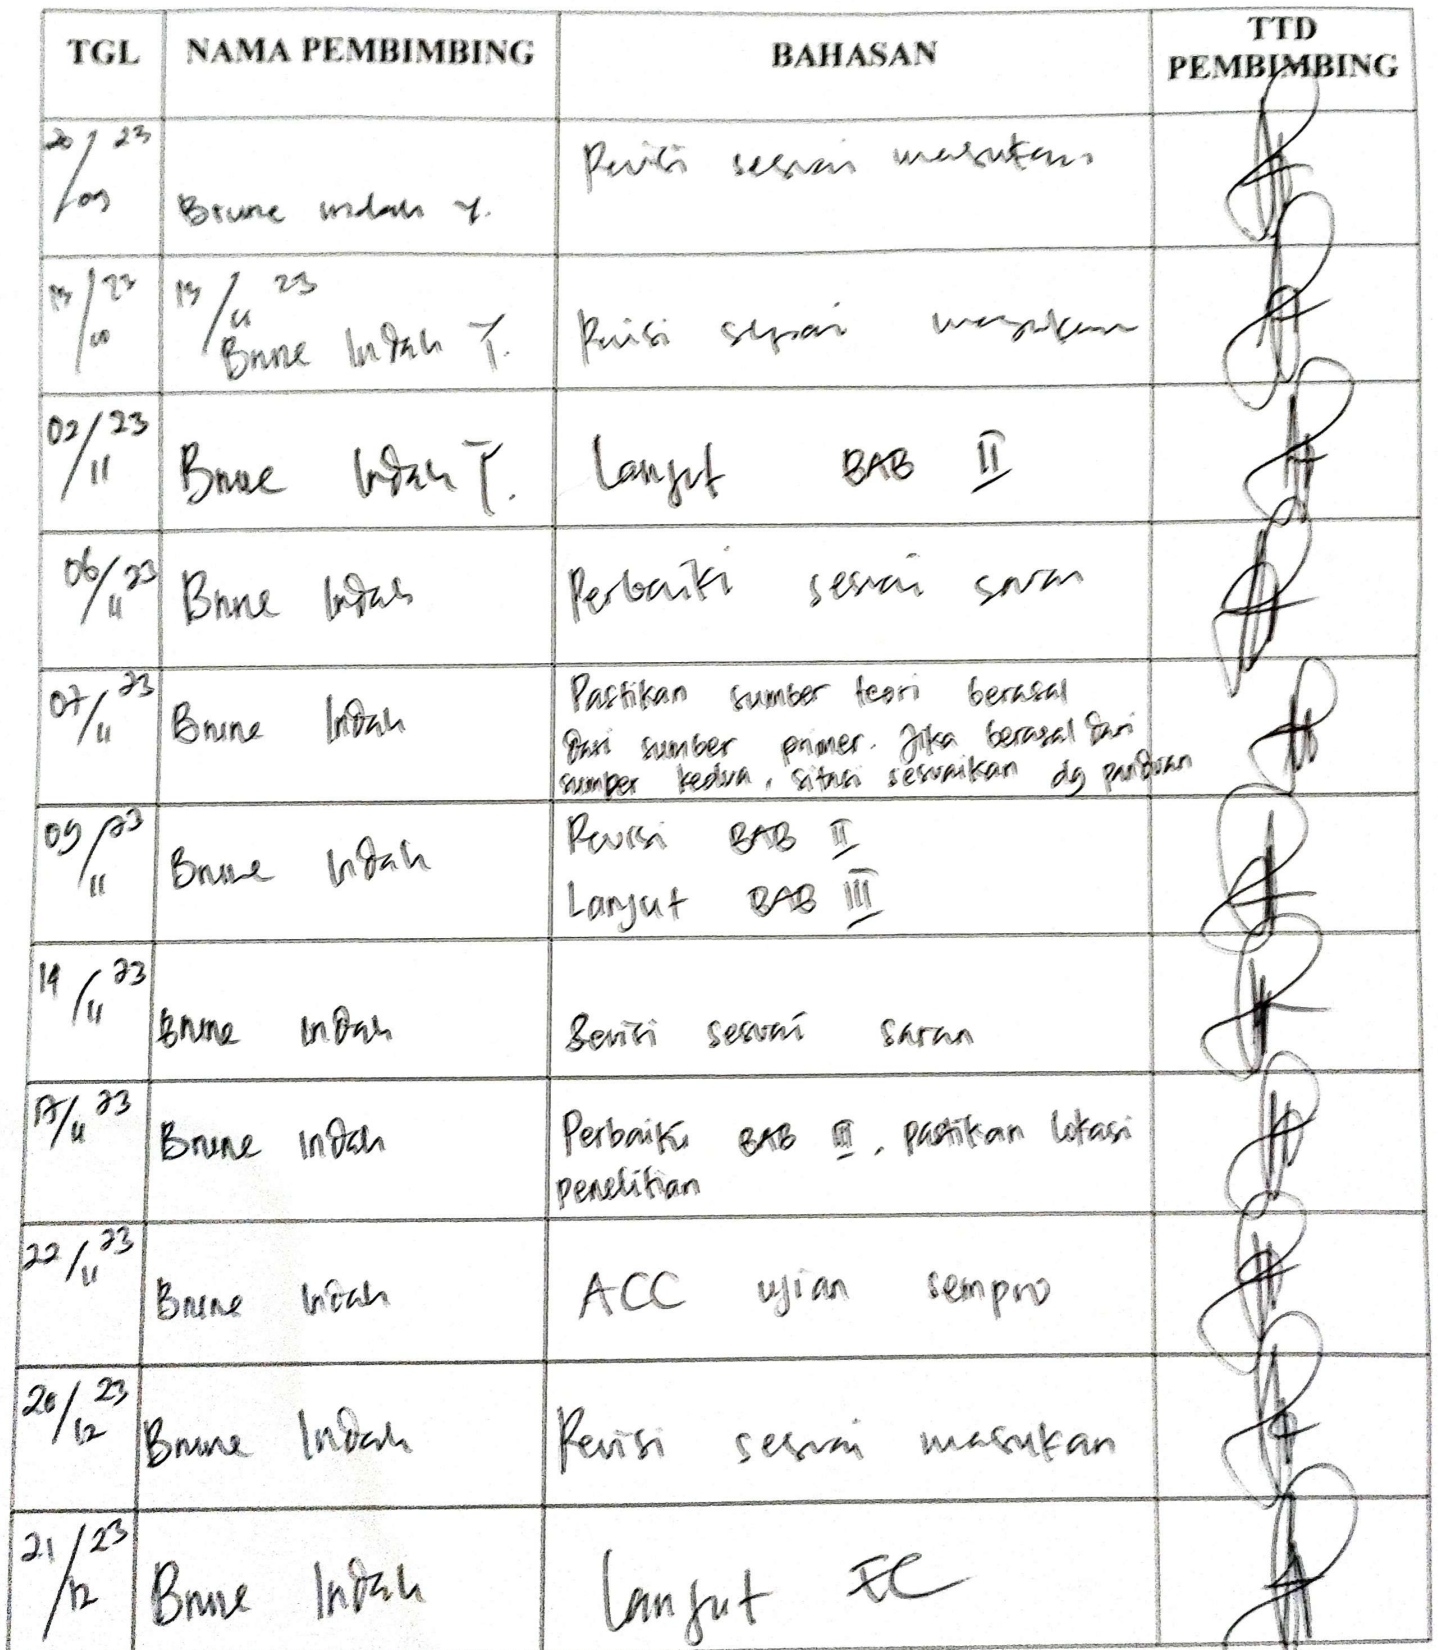 TGL NAMA PEMBIMBING BAHASAN TTD PEMBIMBING
20/09 23 Brune Indah Y. Revisi sesuai masukan
13/10 23 13/11 23 Brune Indah T. Revisi sesuai masukan
02/11 23 Brune Indah T. Lanjut BAB II
06/11 23 Brune Indah Perbaiki sesuai saran
07/11 23 Brune Indah Pastikan sumber teori berasal
dari sumber primer. Jika berasal dari
sumber kedua, sitasi sesuaikan dg panduan
09/11 23 Brune Indah Revisi BAB II
Lanjut BAB III
14/11 23 Brune Indah Revisi sesuai saran
17/11 23 Brune Indah Perbaiki BAB III, pastikan lokasi
penelitian
22/11 23 Brune Indah ACC ujian sempro
20/12 23 Brune Indah Revisi sesuai masukan
21/12 23 Brune Indah Lanjut EC